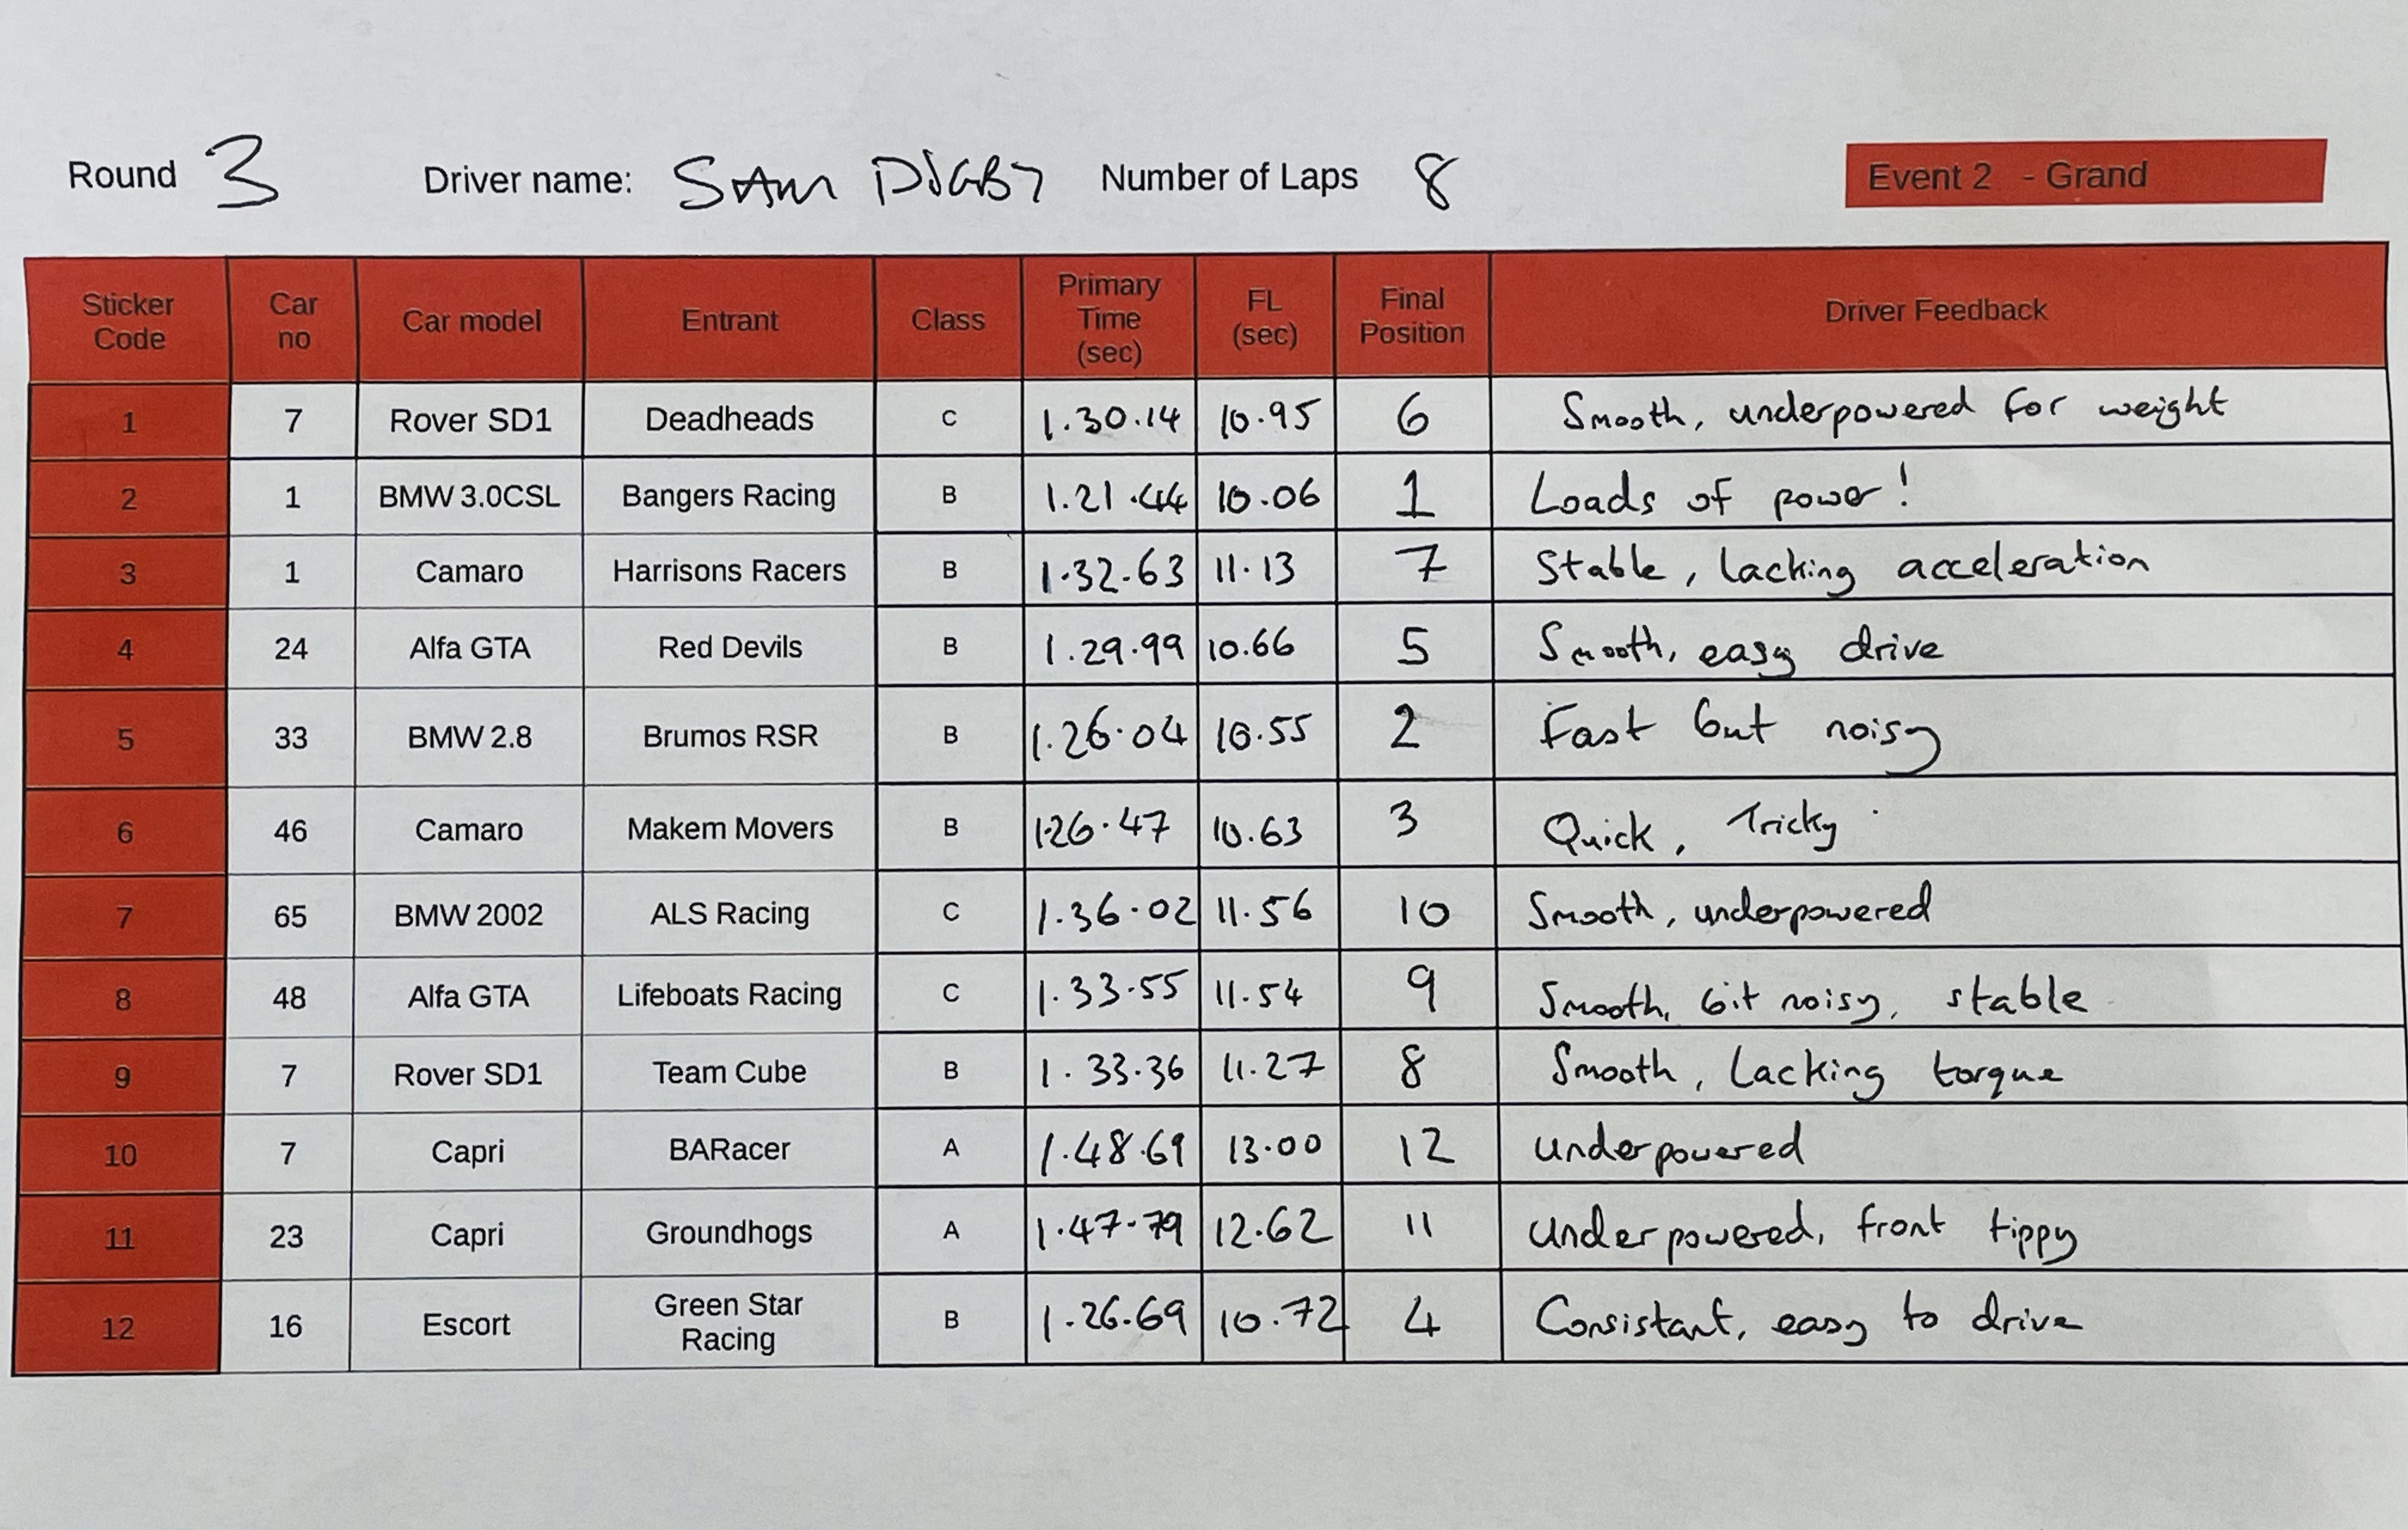 Round 3 Driver name: SAM DIGBY Number of Laps 8 Event 2 - Grand
Sticker Code Car no Car model Entrant Class Primary Time (sec) FL (sec) Final Position Driver Feedback
1 7 Rover SD1 Deadheads C 1.30.14 10.95 6 Smooth, underpowered for weight
2 1 BMW 3.0CSL Bangers Racing B 1.21.44 10.06 1 Loads of power!
3 1 Camaro Harrisons Racers B 1.32.63 11.13 7 Stable, lacking acceleration
4 24 Alfa GTA Red Devils B 1.29.99 10.66 5 Smooth, easy drive
5 33 BMW 2.8 Brumos RSR B 1.26.04 10.55 2 Fast but noisy
6 46 Camaro Makem Movers B 1.26.47 10.63 3 Quick, Tricky
7 65 BMW 2002 ALS Racing C 1.36.02 11.56 10 Smooth, underpowered
8 48 Alfa GTA Lifeboats Racing C 1.33.55 11.54 9 Smooth, bit noisy, stable
9 7 Rover SD1 Team Cube B 1.33.36 11.27 8 Smooth, Lacking torque
10 7 Capri BARacer A 1.48.69 13.00 12 Underpowered
11 23 Capri Groundhogs A 1.47.79 12.62 11 Underpowered, front tippy
12 16 Escort Green Star Racing B 1.26.69 10.72 4 Consistant, easy to drive